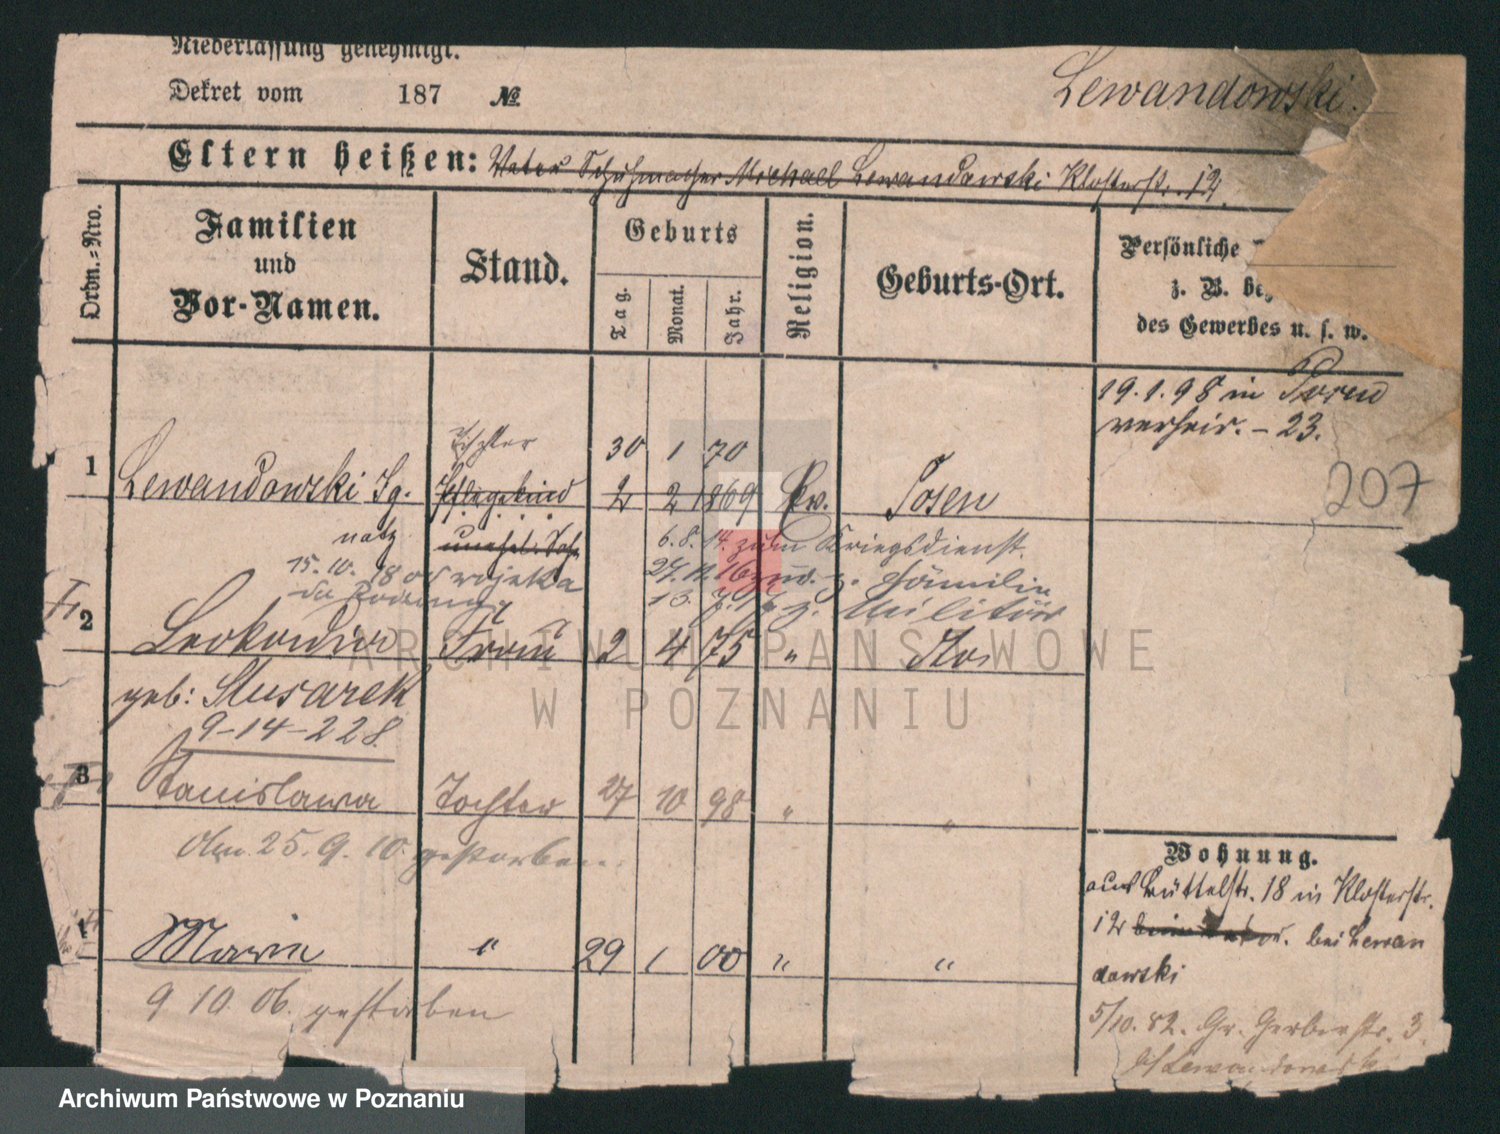 Niederlassung genehmigt.
Dekret vom 187 №
Lewandowski.
Eltern heißen: Vater Schuhmacher Michael Lewandowski Klosterstr. 12.
Ordn.-Nro.
Familien
und
Vor-Namen.
Stand.
Geburts
Tag.
Monat.
Jahr.
Religion.
Geburts-Ort.
Persönliche
z. B.
des Gewerbes u. s. w.
19.1.98 in Posen
verheir. – 23.
207
Tischler 30 1 70
1 Lewandowski Ig- Pflegekind 2 2 1869 Posen
natz unehel. Sohn 6.8.14. zum Kriegsdienst.
15.10.18 27.12.16 z. Familie
13. z. Militär
2 Leokadia Frau 2 4 75 "
geb: Slusarek
9-14-228.
3 Stanislawa Tochter 27 10 98 " "
Am 25.9.10. gestorben.
Maria " 29 1 00 " "
9 10. 06. gestorben
Wohnung.
aus Büttelstr. 18 in Klosterstr.
12 bei Lewan
dowski
5/10. 82. Gr. Gerberstr. 3.
b/Lewandowski
ARCHIWUM PAŃSTWOWE
W POZNANIU
Archiwum Państwowe w Poznaniu